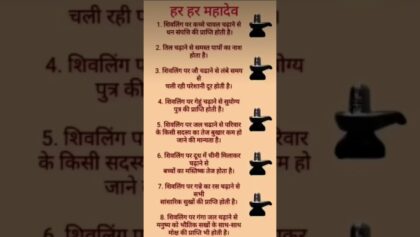 हर हर महादेव
1. शिवलिंग पर कच्चे चावल चढ़ाने से
धन संपत्ति की प्राप्ति होती है।
2. तिल चढ़ाने से समस्त पापों का नाश
होता है।
3. शिवलिंग पर जौ चढाने से लंबे समय
से
चली रही परेशानी दूर होती है।
4. शिवलिंग पर गेहूं चढ़ाने से सुयोग्य
पुत्र की प्राप्ति होती है।
5. शिवलिंग पर जल चढ़ाने से परिवार
के किसी सदस्य का तेज बुखार कम हो
जाने की मान्यता है।
6. शिवलिंग पर दूध में चीनी मिलाकर
चढ़ाने से
बच्चों का मस्तिष्क तेज होता है।
7. शिवलिंग पर गन्ने का रस चढ़ाने से
सभी
सांसारिक सुखों की प्राप्ति होती है।
8. शिवलिंग पर गंगा जल चढ़ाने से
मनुष्य को भौतिक सुखों के साथ-साथ
मोक्ष की प्राप्ति भी होती है।
चली रही
4. शिवलि
पुत्र की
5. शिव
के किसी सदस्य
जाने
6. शिव